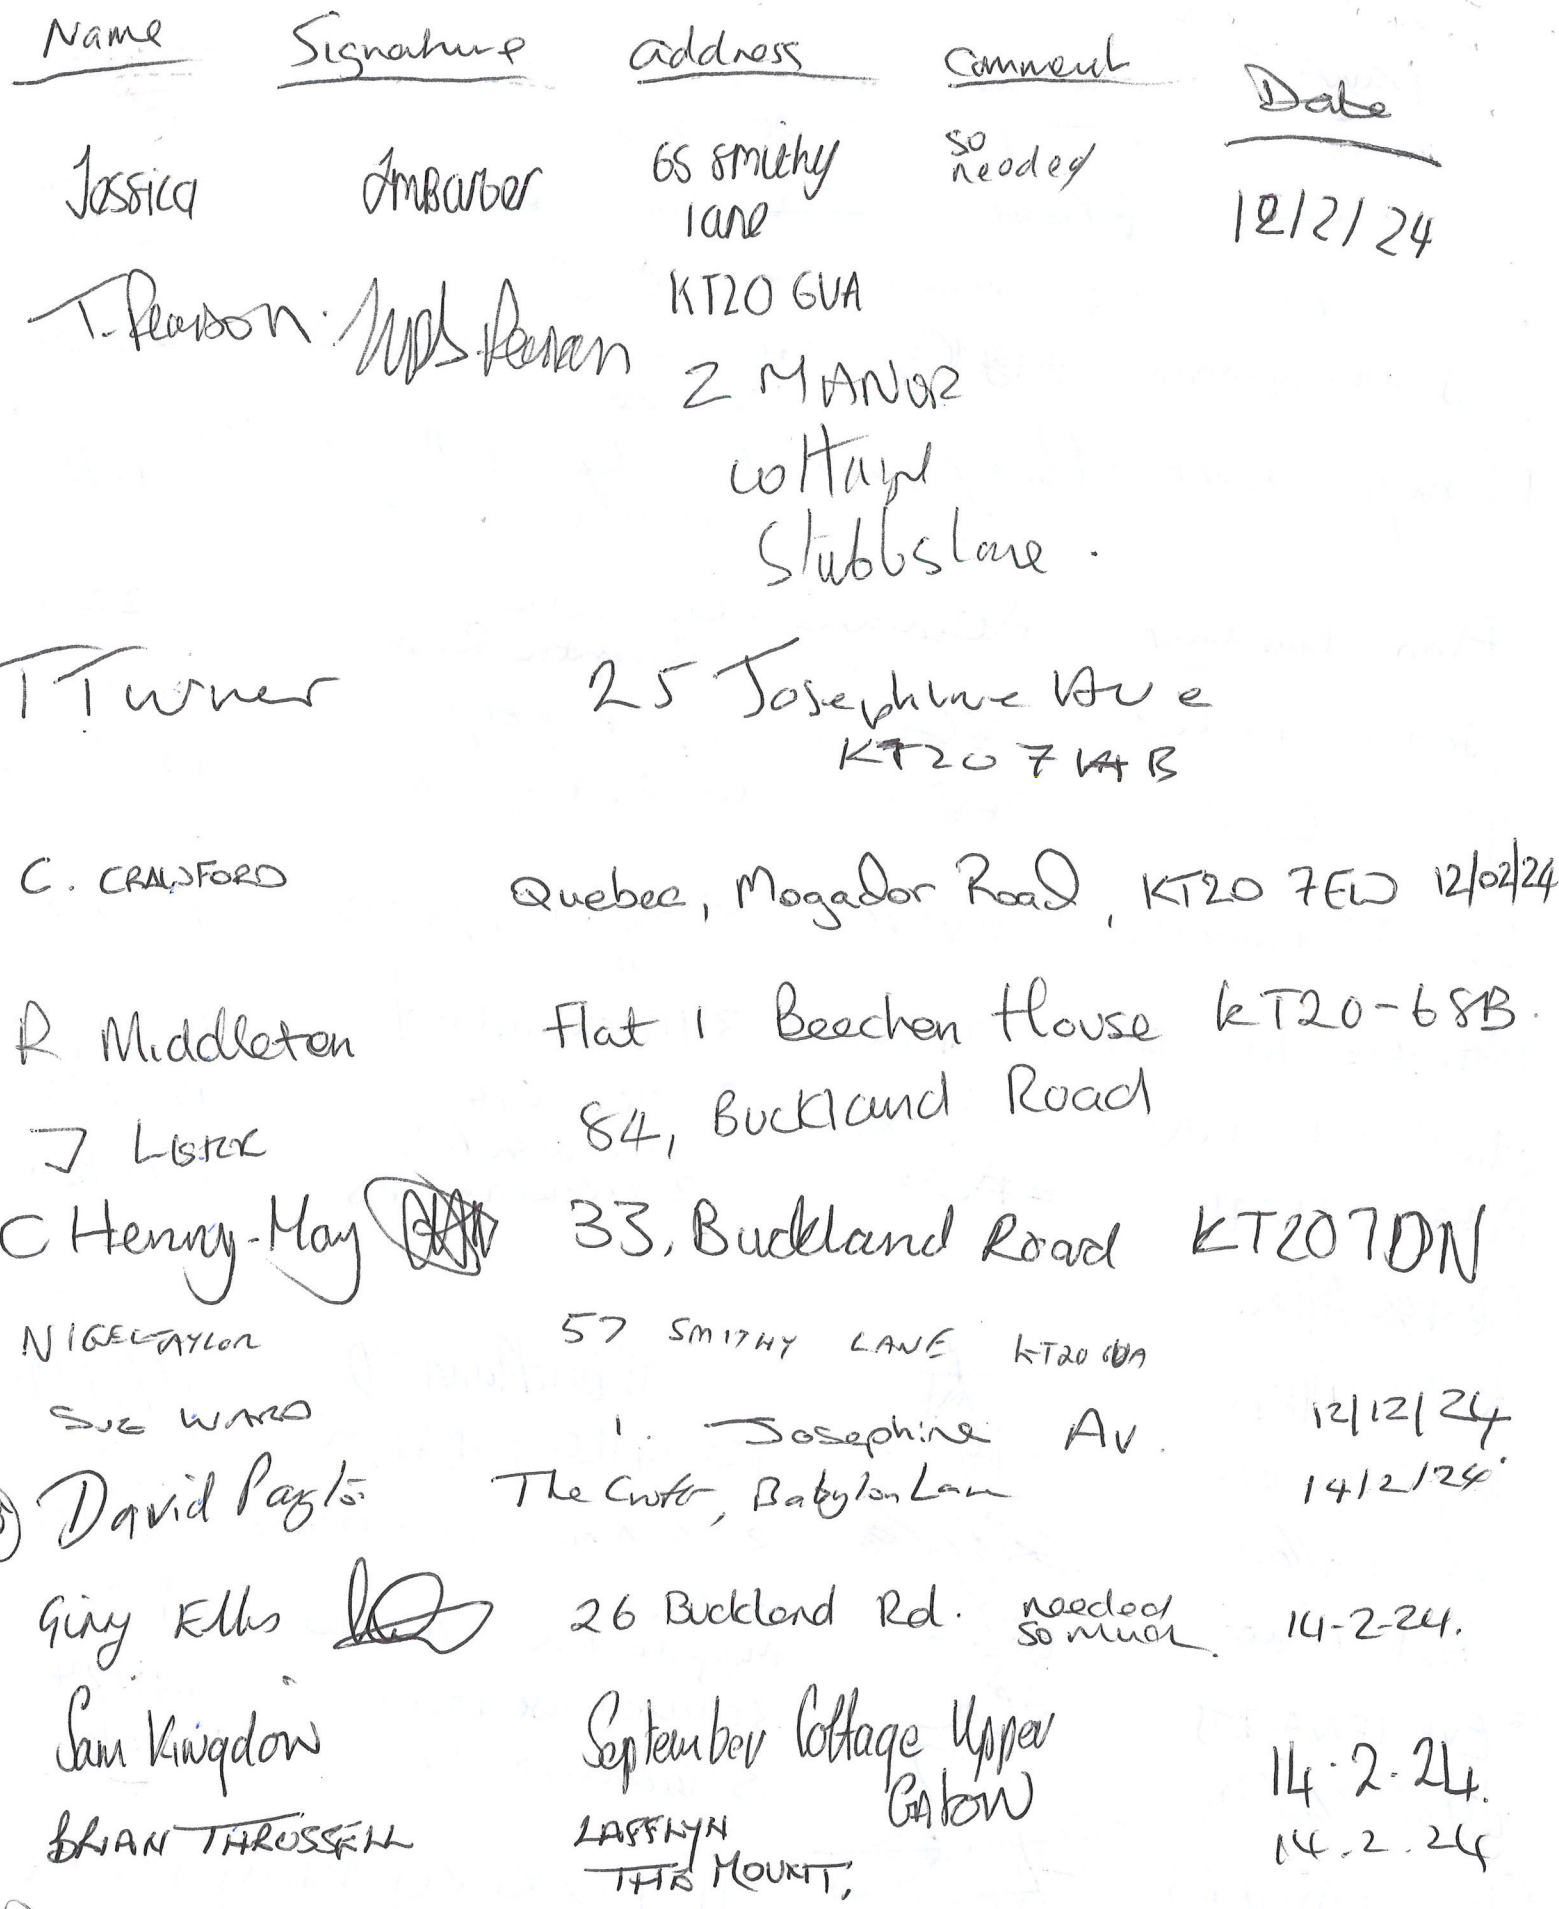 Name Signature address comment Date
Jessica JMBarber 65 smithy lane so needed 12/2/24
KT20 6UA
T. Pearson. Pearson 2 MANOR
cottage
Stubbs lane.
T Turner 25 Josephine Ave
KT20 7 B
C. CRAWFORD Quebec, Mogador Road, KT20 7EW 12/02/24
R Middleton Flat 1 Beechen House KT20-6SB.
J 84, Buckland Road
C Henny-May 33, Buckland Road KT20 7DN
NIGEL TAYLOR 57 SMITHY LANE KT20 6UA
SUE WARD 1. Josephine Av. 12/12/24
David The Croft, Babylon Lane 14/2/24
Giny Ellis 26 Buckland Rd. needed so much. 14-2-24.
Sam Kingdon September Cottage Upper 14.2.24.
Gatton
BRIAN THRUSSELL 14.2.24
THE MOUNT,